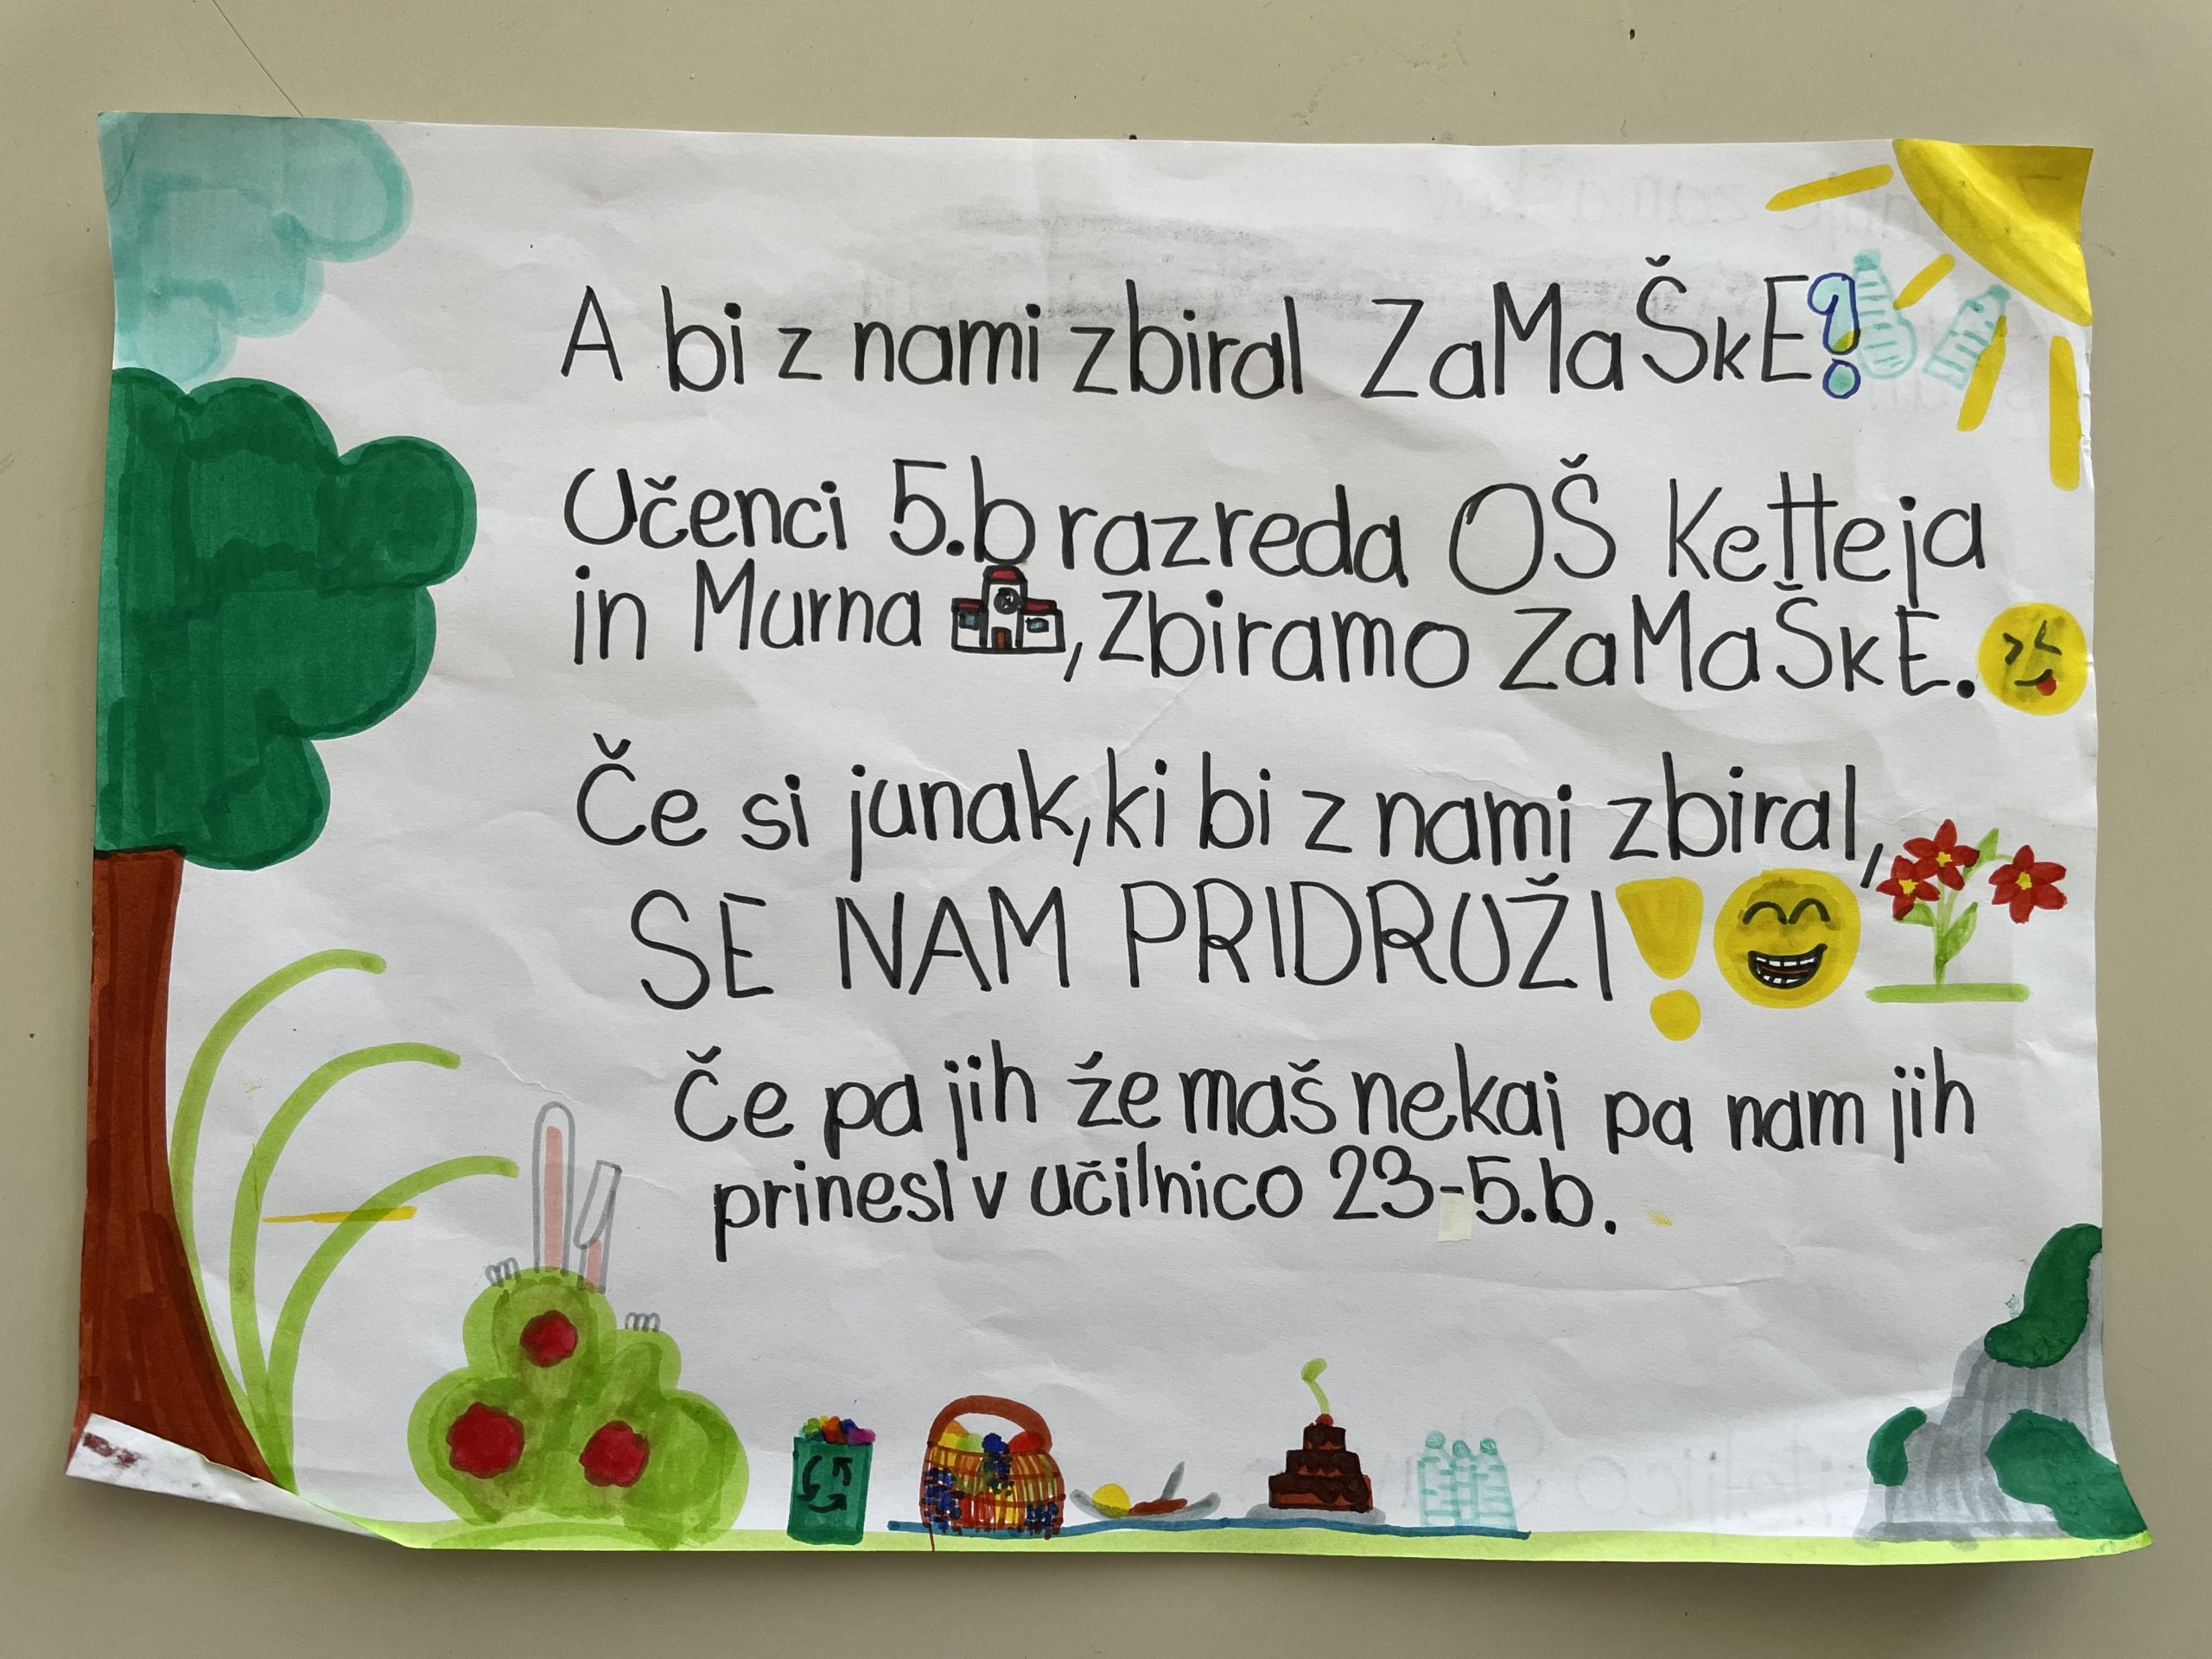 A bi z nami zbiral ZaMaŠkE?
Učenci 5.b razreda OŠ Ketteja
in Murna, Zbiramo ZaMaŠkE.
Če si junak, ki bi z nami zbiral,
SE NAM PRIDRUŽI!
Če pa jih že maš nekaj pa nam jih
prinesi v učilnico 23-5.b.